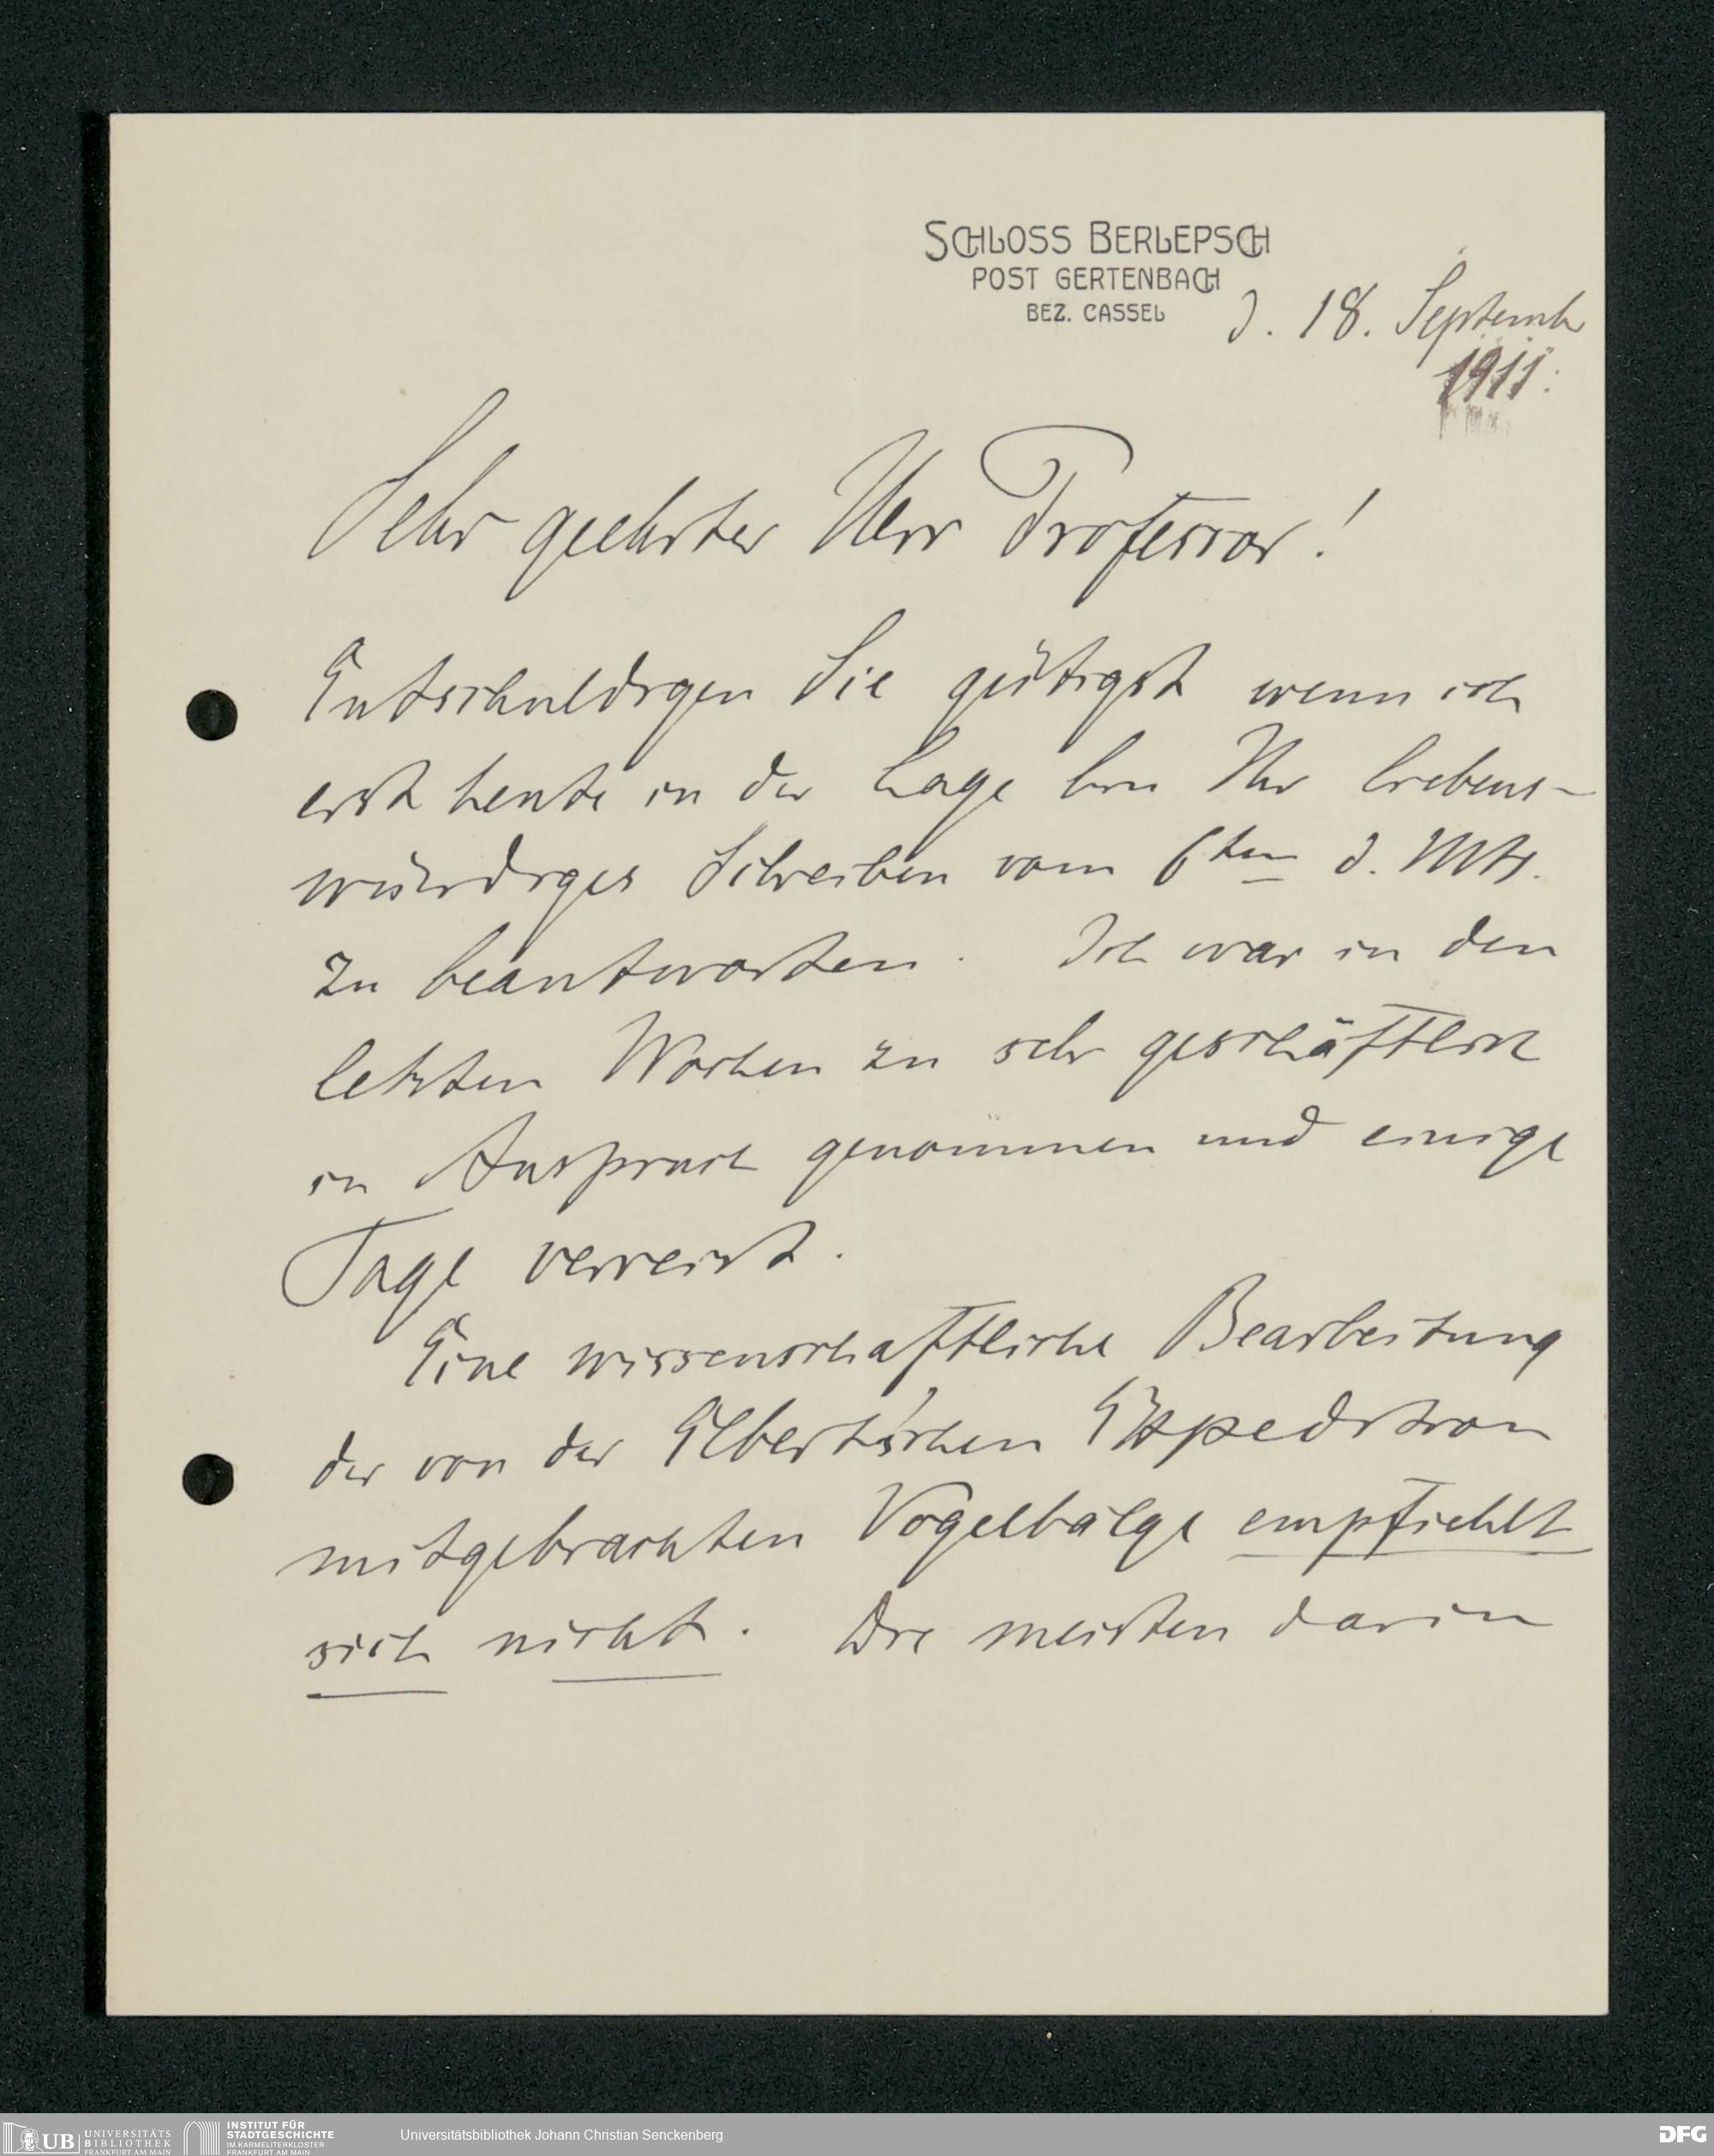 SCHLOSS BERLEPSCH
POST GERTENBACH
BEZ. CASSEL
d. 18. Septemb
1911.
Sehr geehrter Herr Professor!
Entschuldigen Sie gütigst wenn ich
erst heute in der Lage bin Ihr liebens-
würdiges Schreiben vom 6ten d. Mts.
zu beantworten. Ich war in den
letzten Wochen zu sehr geschäftlich
in Anspruch genommen und einige
Tage verreist.
Eine wissenschaftliche Bearbeitung
der von der Elbert'schen Expedition
mitgebrachten Vogelbälge empfiehlt
sich nicht. Die meisten darin
UB UNIVERSITÄTS
BIBLIOTHEK
FRANKFURT AM MAIN
INSTITUT FÜR
STADTGESCHICHTE
IM KARMELITERKLOSTER
FRANKFURT AM MAIN
Universitätsbibliothek Johann Christian Senckenberg
DFG